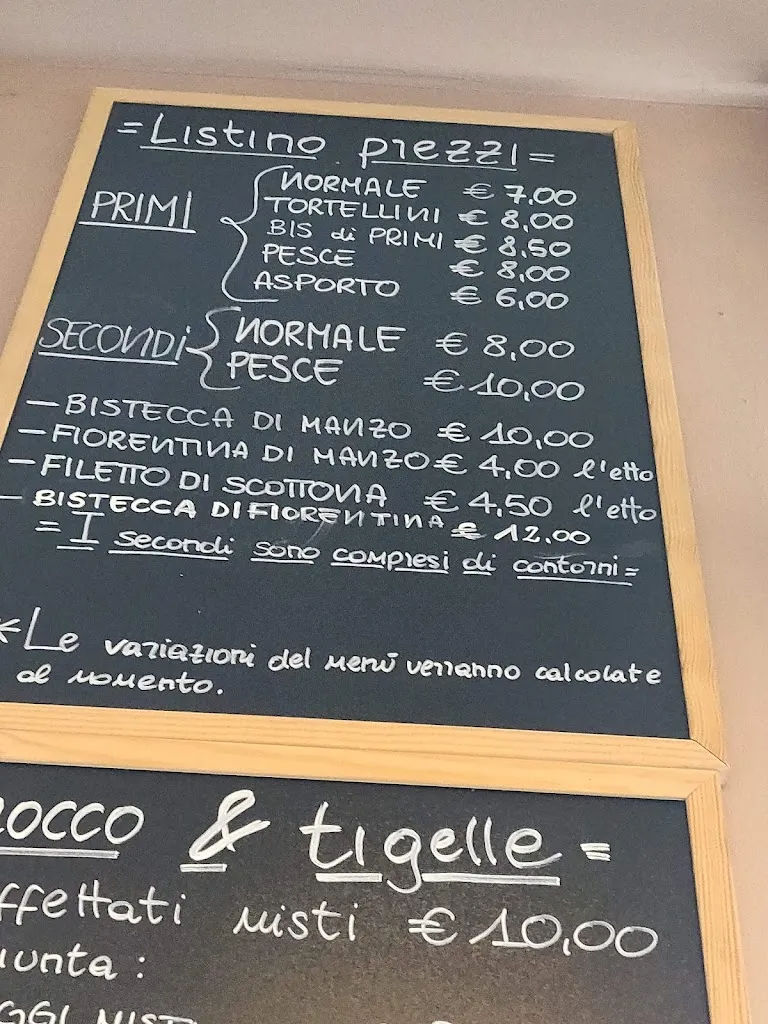 = Listino prezzi =
PRIMI
NORMALE € 7.00
TORTELLINI € 8,00
BIS di PRIMI € 8,50
PESCE € 8,00
ASPORTO € 6,00
SECONDI
NORMALE € 8,00
PESCE € 10,00
- BISTECCA DI MANZO € 10,00
- FIORENTINA DI MANZO € 4,00 l'etto
- FILETTO DI SCOTTONA € 4,50 l'etto
- BISTECCA DI FIORENTINA € 12.00
= I secondi sono compresi di contorni =
*Le variazioni del menù verranno calcolate
al momento.
OCCO & tigelle =
ffettati misti € 10,00
iunta :
GGI MIST